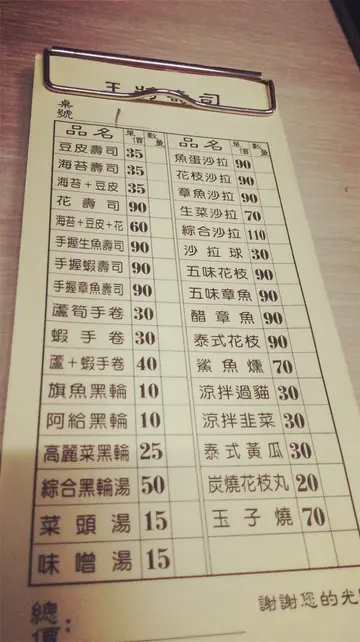 王將壽司
桌號
品名 單價 數量 品名 單價 數量
豆皮壽司 35 魚蛋沙拉 90
海苔壽司 35 花枝沙拉 90
海苔+豆皮 35 章魚沙拉 90
花壽司 90 生菜沙拉 70
海苔+豆皮+花 60 綜合沙拉 110
手握生魚壽司 90 沙拉球 30
手握蝦壽司 90 五味花枝 90
手握章魚壽司 90 五味章魚 90
蘆筍手卷 30 醋章魚 90
蝦手卷 30 泰式花枝 90
蘆+蝦手卷 40 鯊魚燻 70
旗魚黑輪 10 涼拌過貓 30
阿給黑輪 10 涼拌韭菜 30
高麗菜黑輪 25 泰式黃瓜 30
綜合黑輪湯 50 炭燒花枝丸 20
菜頭湯 15 玉子燒 70
味噌湯 15
總價:
謝謝您的光